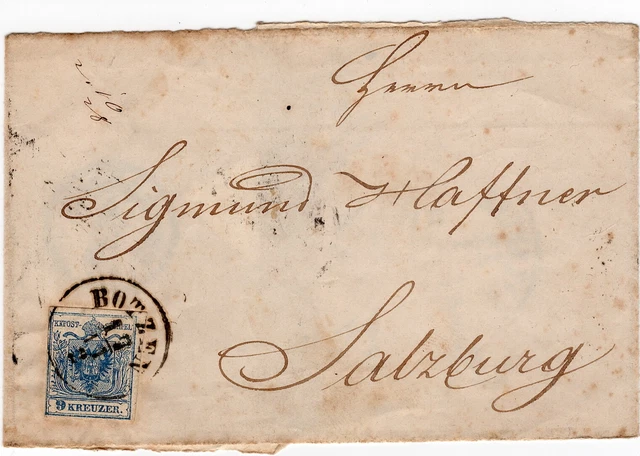 Herrn
Sigmund Haffner
Salzburg
BOTZEN
KKPOST-STEMPEL
9 KREUZER.